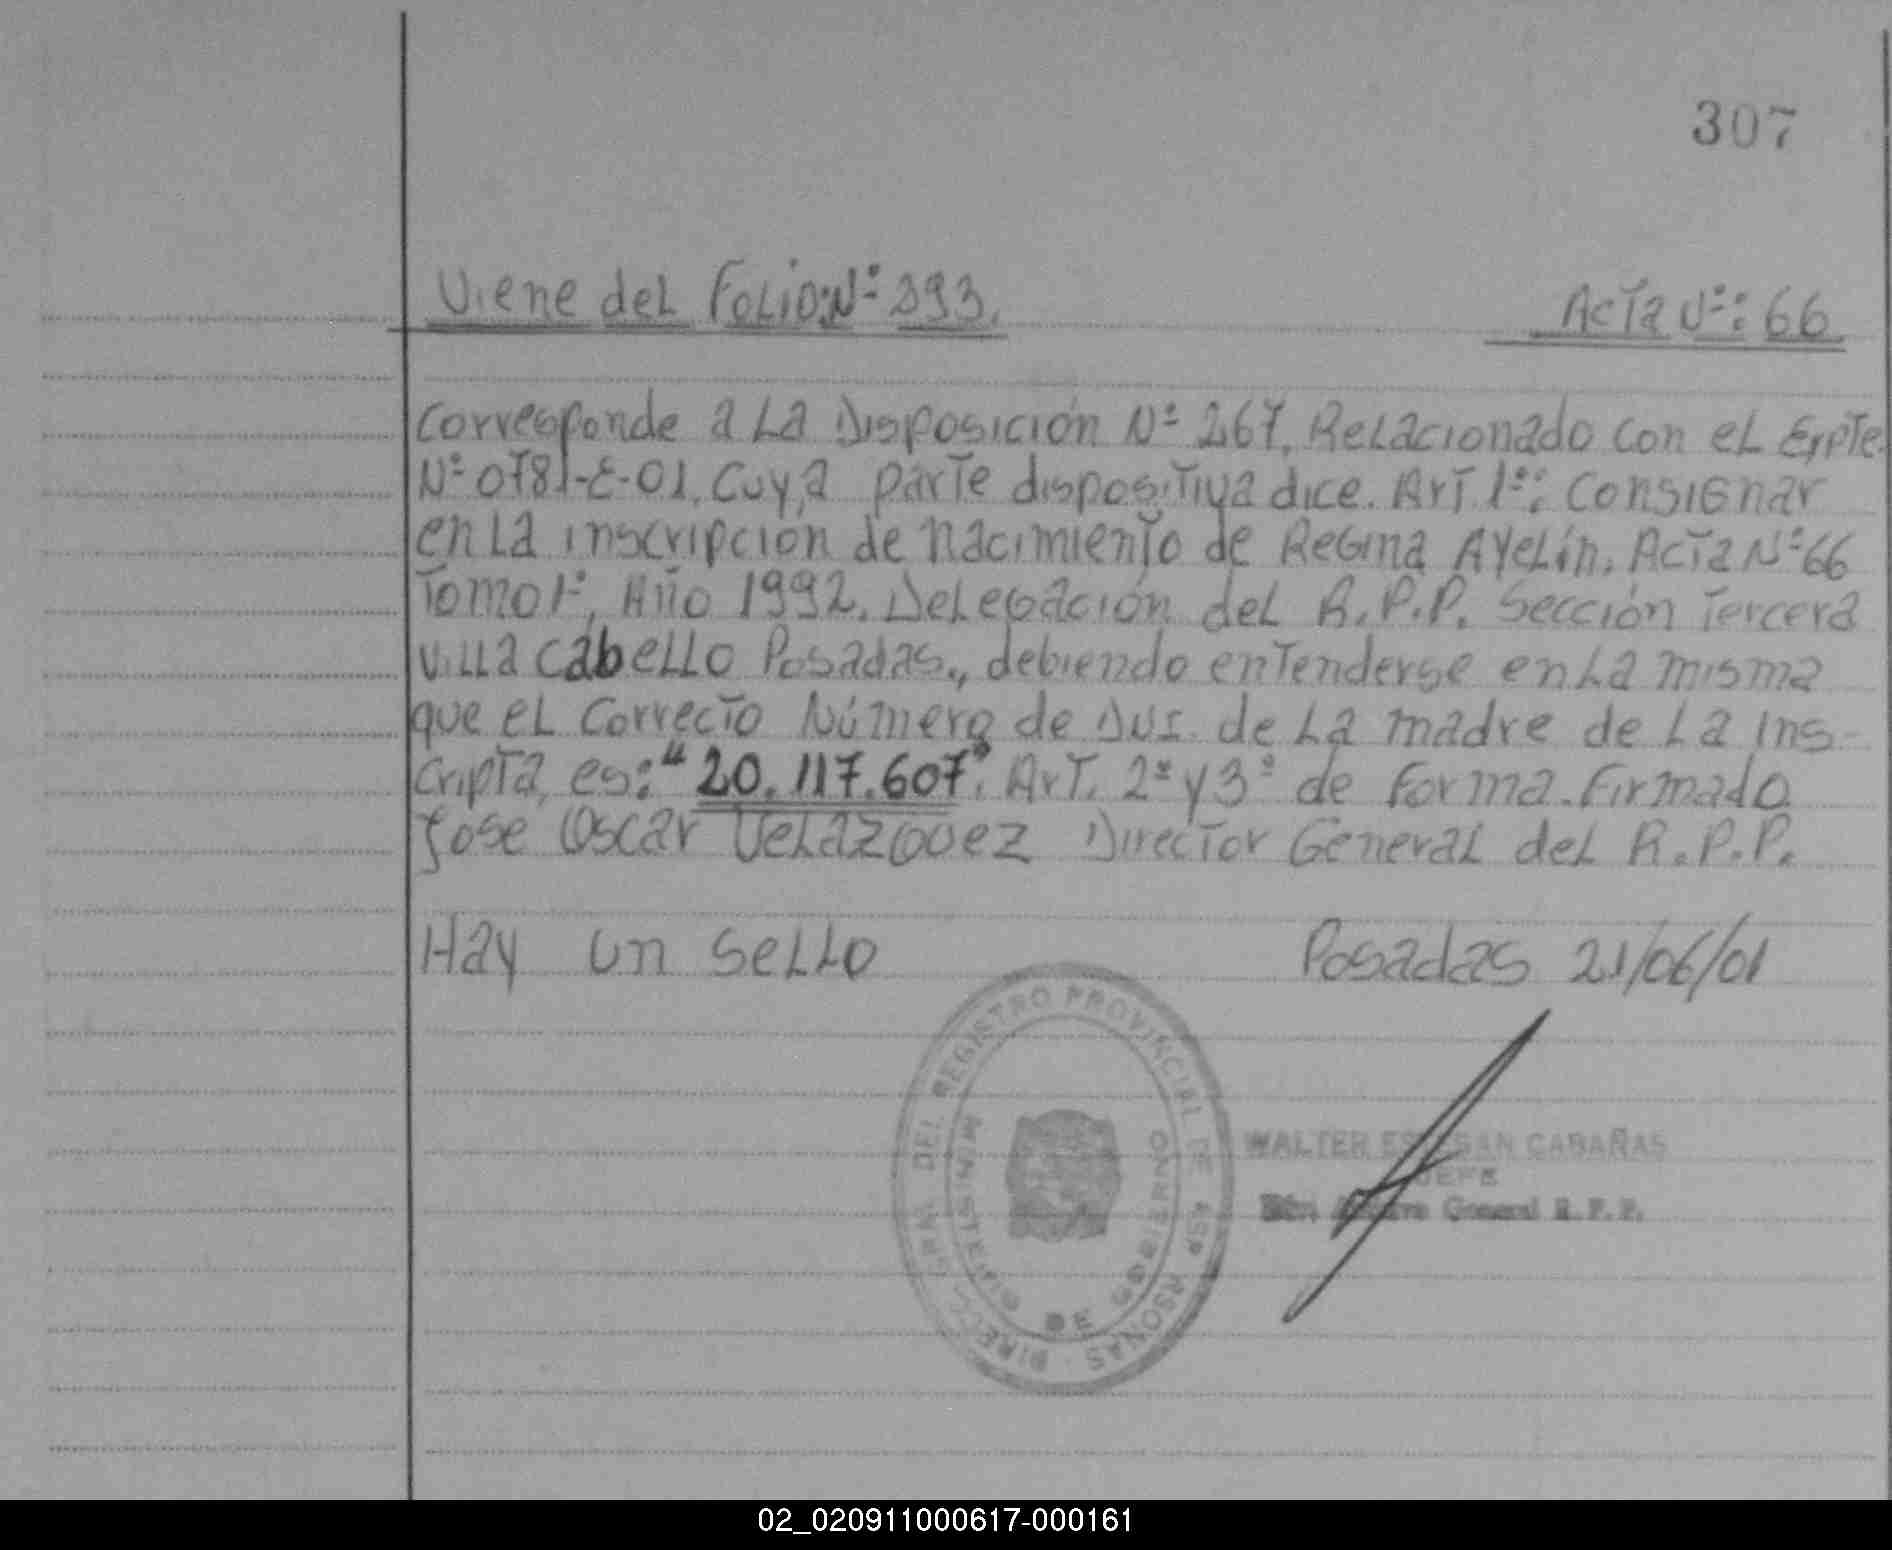 307
Viene del Folio: Nº 393.
Acta Nº: 66
Corresponde a La Disposición Nº 267, Relacionado con el Expte.
Nº 0781-E-01, Cuya parte dispositiva dice. Art. 1º: Consignar
en La inscripción de nacimiento de Regina Ayelín, Acta Nº 66
Tomo 1º, Año 1992, Delegación del R.P.P. Sección Tercera
Villa Cabello Posadas., debiendo entenderse en La misma
que el Correcto Número de DNI. de La madre de La ins-
cripta, es: "20.117.607". Art. 2º y 3º de Forma. Firmado
Jose Oscar Velazquez Director General del R.P.P.
Hay un Sello
Posadas 21/06/01
DEL REGISTRO PROVINCIAL DE
MINISTERIO DE GOBIERNO
WALTER ESTEBAN CABAÑAS
JEFE
General R.P.P.
02_020911000617-000161